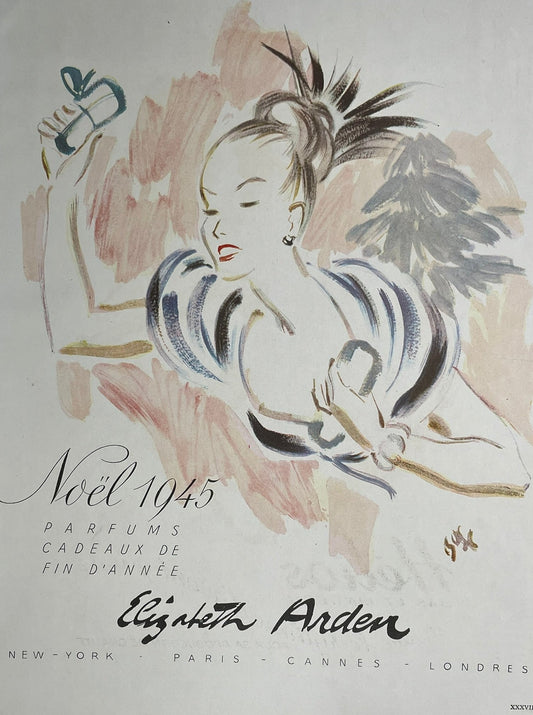 Noël 1945
PARFUMS
CADEAUX DE
FIN D'ANNÉE
Elizabeth Arden
NEW-YORK - PARIS - CANNES - LONDRES